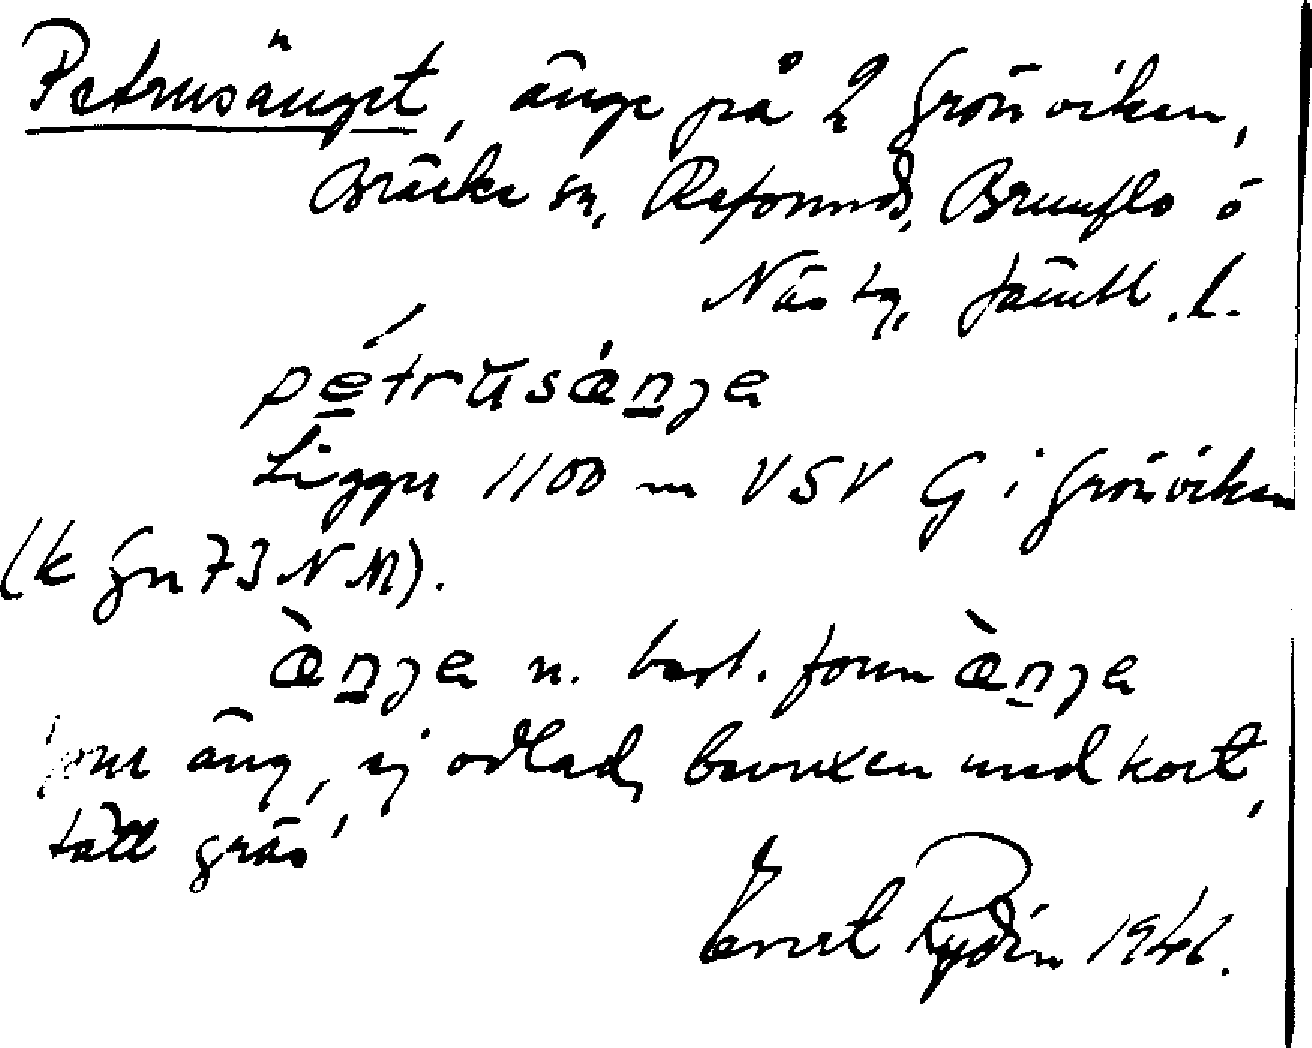 Petrusänget, änge på 2 Grönviken,
Bräcke sn, Refsunds, Brunflo o
Näs tg, Jämtl. l.
pétrŭsæ̀nje
Ligger 1100 m VSV G i Grönviken
(k Gn 73 NM).
æ̀nje n. best. form æ̀nje
äng, ej odlad, bevuxen med kort,
tätt gräs'
Ernst Rydin 1946.